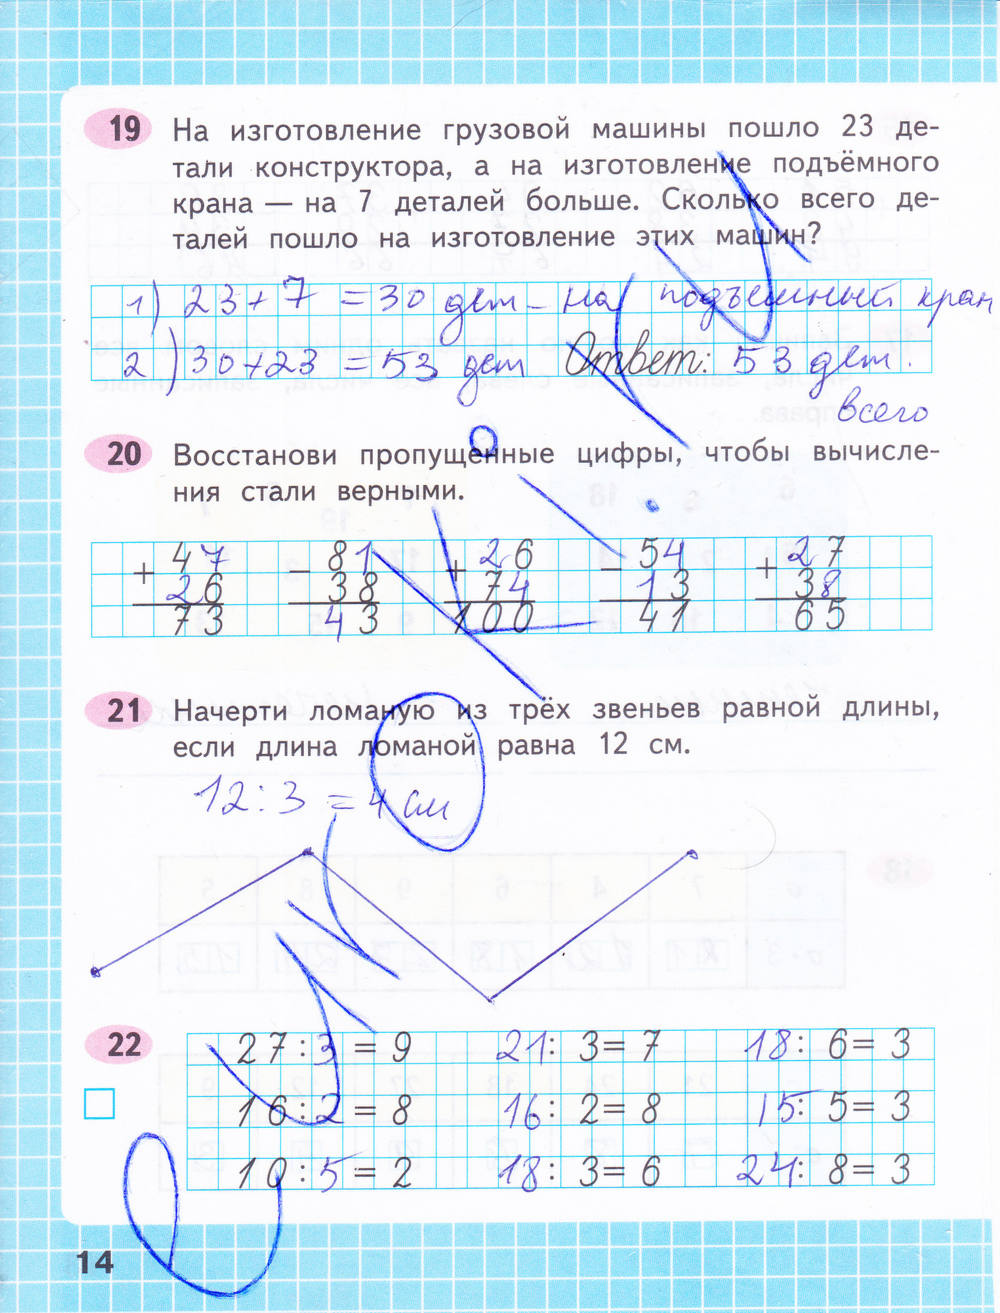 19 На изготовление грузовой машины пошло 23 де-
тали конструктора, а на изготовление подъёмного
крана — на 7 деталей больше. Сколько всего де-
талей пошло на изготовление этих машин?
1) 23 + 7 = 30 дет – на подъемный кран
2) 30 + 23 = 53 дет Ответ: 53 дет.
всего
20 Восстанови пропущенные цифры, чтобы вычисле-
ния стали верными.
47 81 26 54 27
+ − + − +
26 38 74 13 38
73 43 100 41 65
21 Начерти ломаную из трёх звеньев равной длины,
если длина ломаной равна 12 см.
12 : 3 = 4 см
22 27 : 3 = 9 21 : 3 = 7 18 : 6 = 3
16 : 2 = 8 16 : 2 = 8 15 : 5 = 3
10 : 5 = 2 18 : 3 = 6 24 : 8 = 3
14